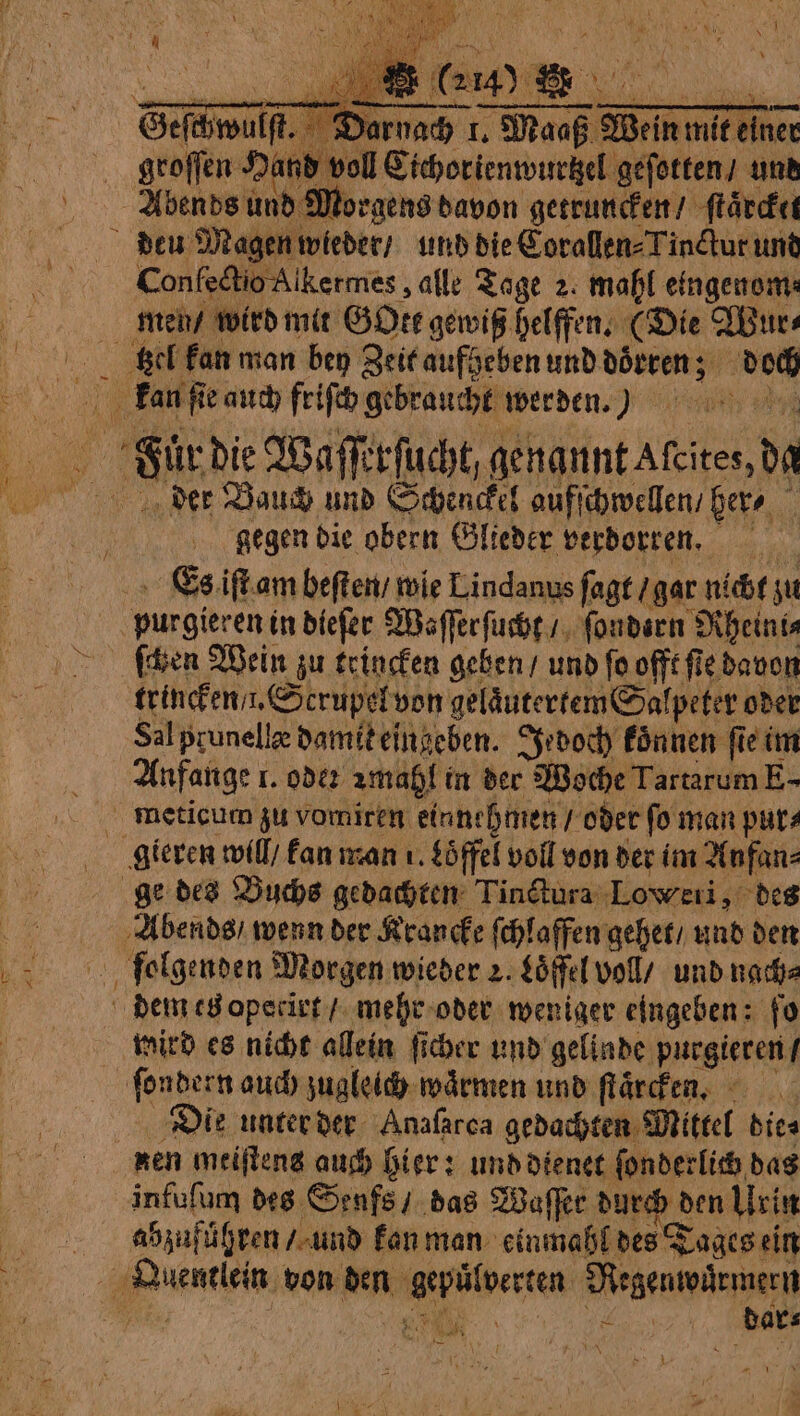 (214)
Geſchwulſt. Darnach 1. Maaß Wein mit einer
groſſen Hand voll Cichorienwurtzel geſotten / und
Abends und Morgens davon getruncken / ſtaͤrcket
deu Magen wieder / und die Corallen-Tinctur und
Confectio Alkermes, alle Tage 2. mahl eingenom-
men / wird mit GOtt gewiß helffen. (Die Wur-
tzel kan man bey Zeit aufheben und doͤrren; doch
kan ſie auch friſch gebraucht werden.)
Fuͤr die Waſſerſucht, genannt Aſcites, da
der Bauch und Schenckel aufſchwellen / her-
gegen die obern Glieder verdorren.
Es iſt am beſten / wie Lindanus ſagt / gar nicht zu
purgieren in dieſer Waſſerſucht / ſondern Rheini-
ſchen Wein zu trincken geben / und ſo offt ſie davon
trincken / 1. Scrupel von gelaͤutertem Salpeter oder
Sal prunellæ damit eingeben. Jedoch koͤnnen ſie im
Anfange 1. oder 2mahl in der Woche Tartarum E-
meticum zu vomiren einnehmen / oder ſo man pur-
gieren will / kan man 1. Loͤffel voll von der im Anfan-
ge des Buchs gedachten Tinctura Loweri, des
Abends / wenn der Krancke ſchlaffen gehet / und den
folgenden Morgen wieder 2. Loͤffel voll / und nach-
dem es operirt / mehr oder weniger eingeben: ſo
wird es nicht allein ſicher und gelinde purgieren /
ſondern auch zugleich waͤrmen und ſtaͤrcken.
Die unter der Anaſarca gedachten Mittel die-
nen meiſtens auch hier: und dienet ſonderlich das
infuſum des Senfs / das Waſſer durch den Urin
abzufuͤhren / und kan man einmahl des Tages ein
Quentlein von den gepuͤlverten Regenwuͤrmern
dar-